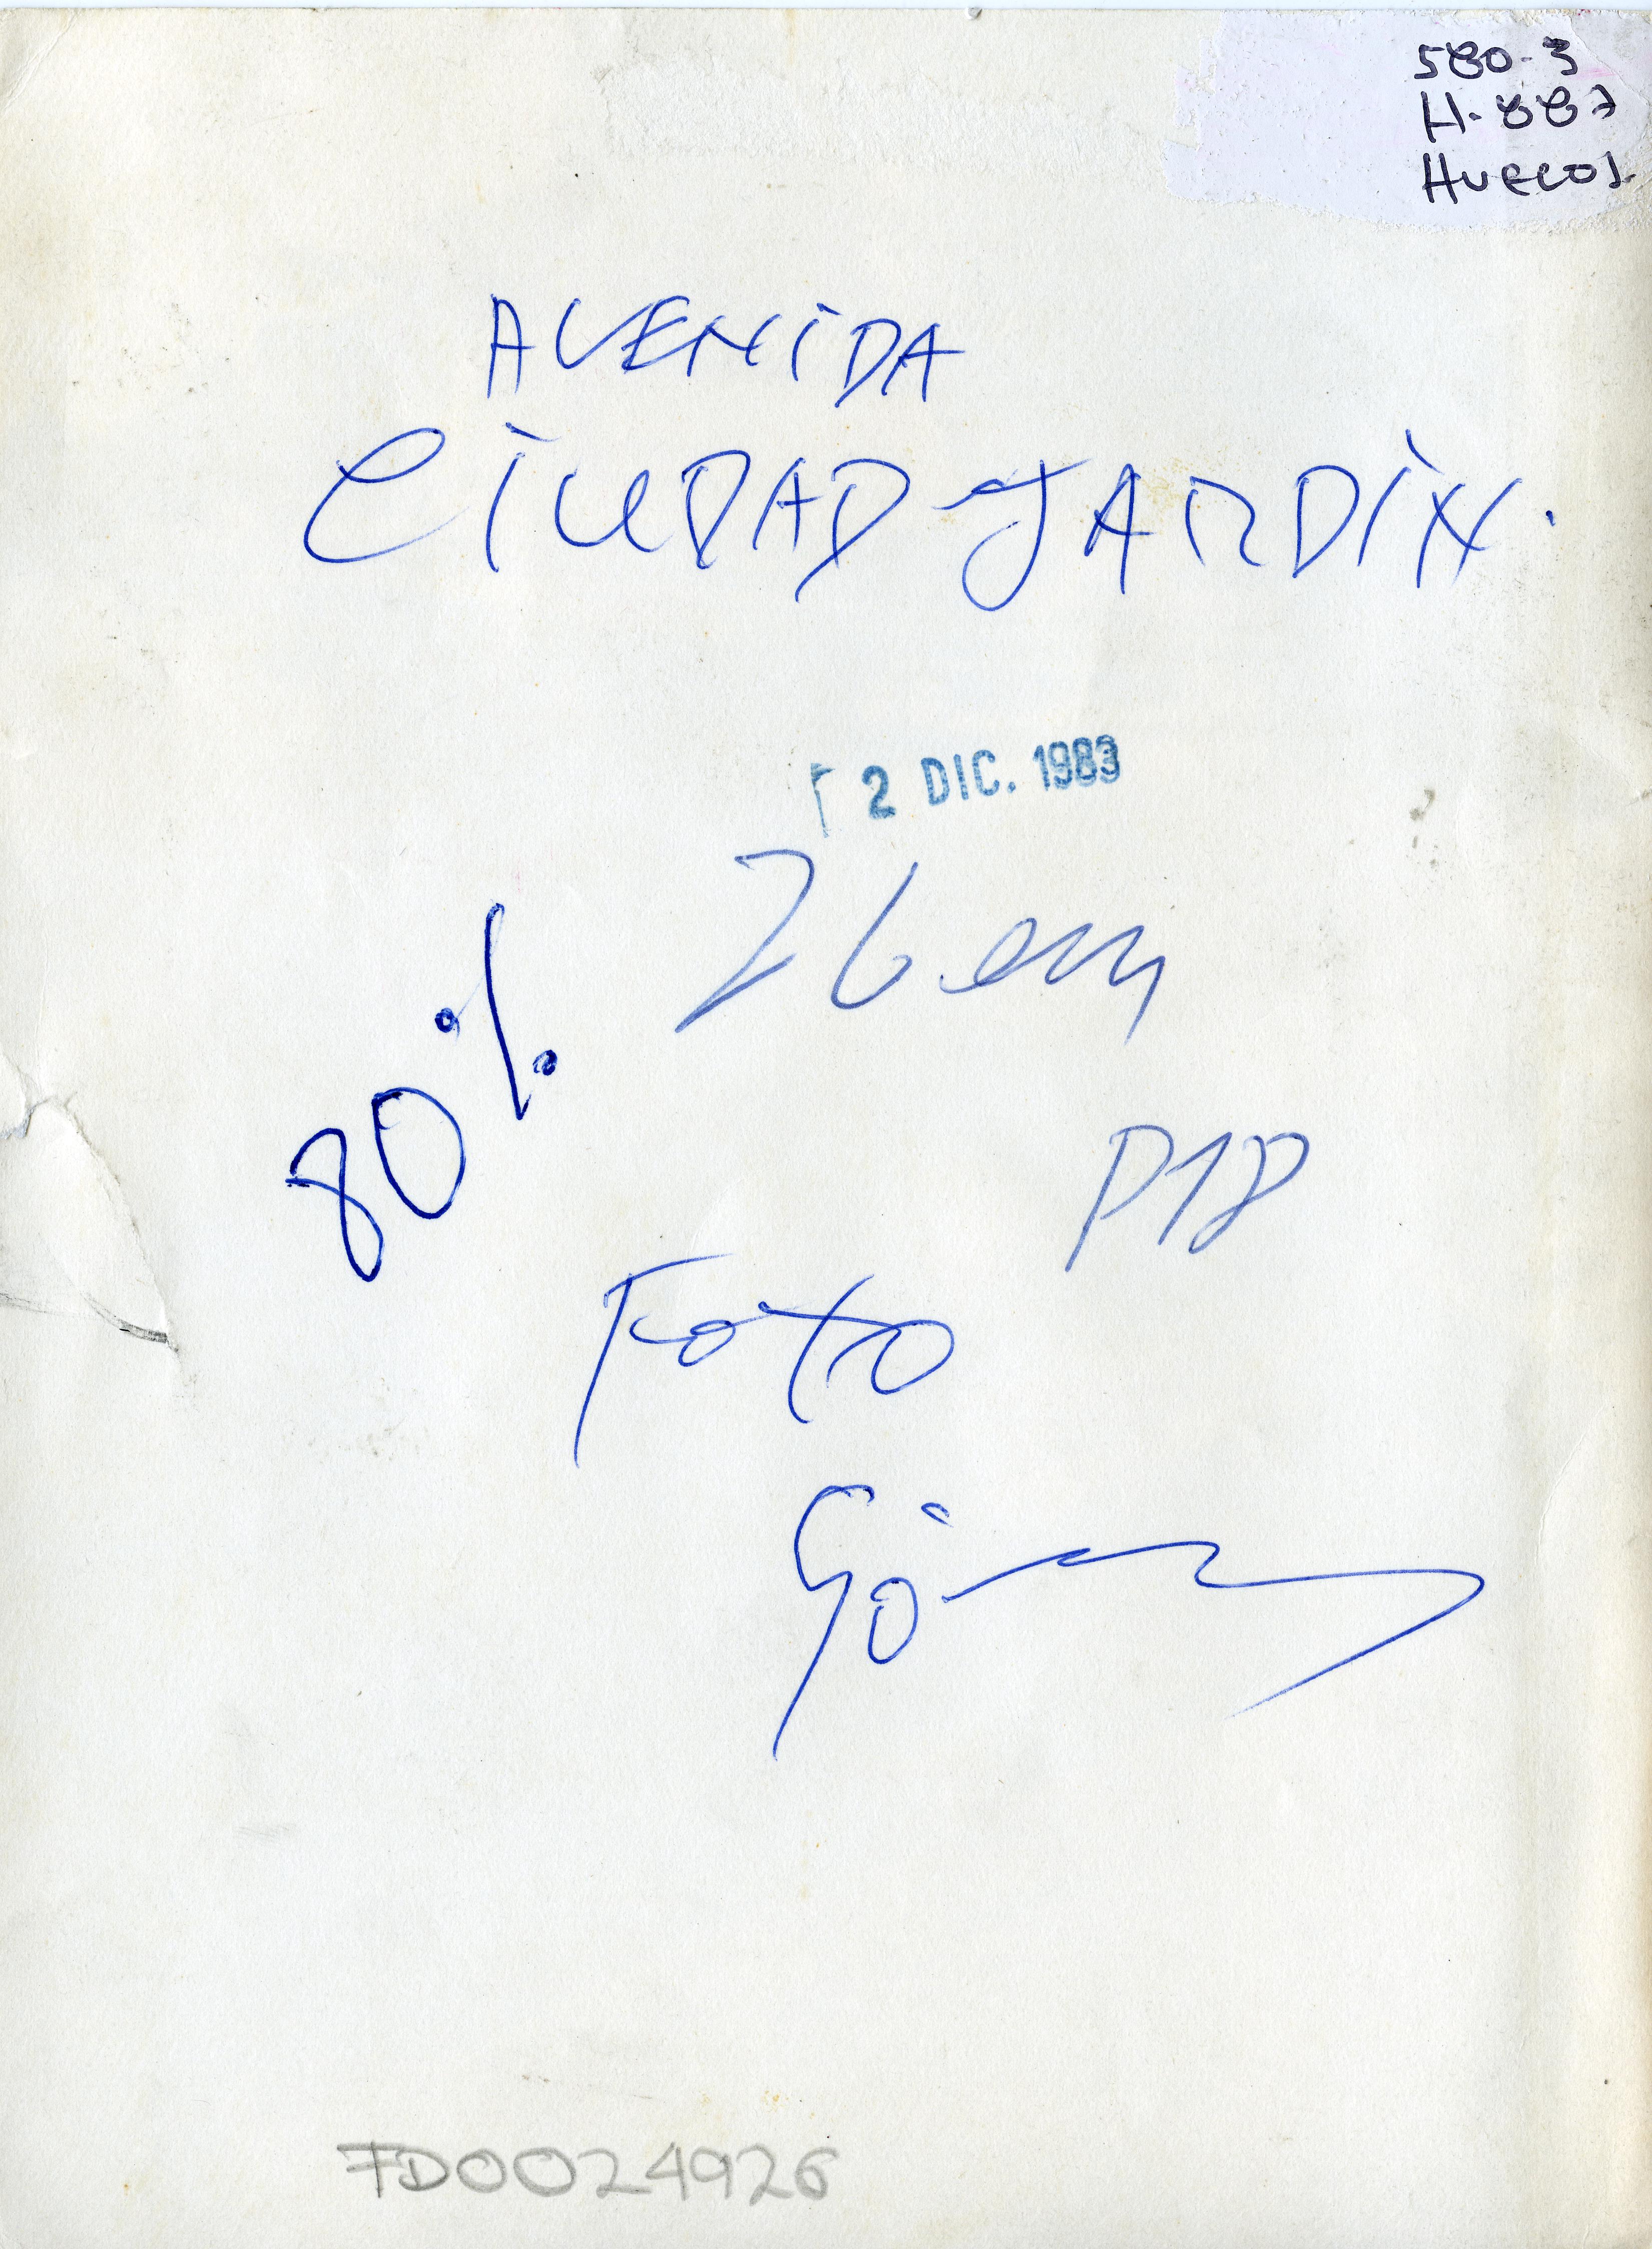 580-3
H-887
Huecos.
AVENIDA
CIUDAD-JARDIN.
2 DIC. 1983
26 em
80%
P18
Foto
FD0024926